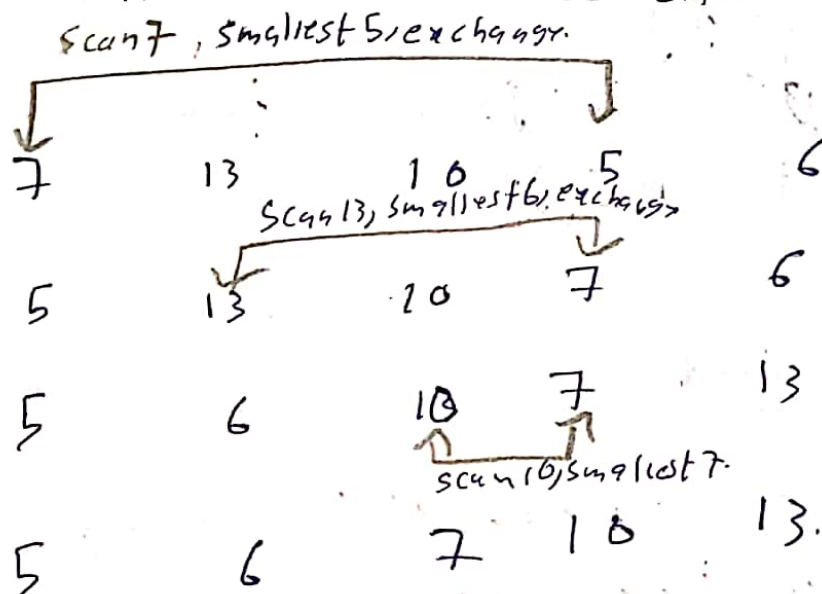 scan 7, smallest 5, exchange.
7 13 10 5 6
Scan 13, smallest 6, exchange
5 13 10 7 6
5 6 10 7 13
scan 10, smallest 7.
5 6 7 10 13.